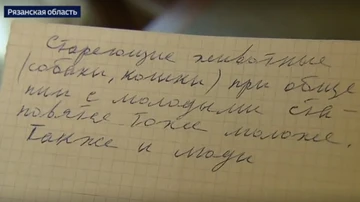 Рязанская область
Стареющие животные
(собаки, кошки) при обще
нии с молодыми ста
новятся тоже моложе.
Также и люди